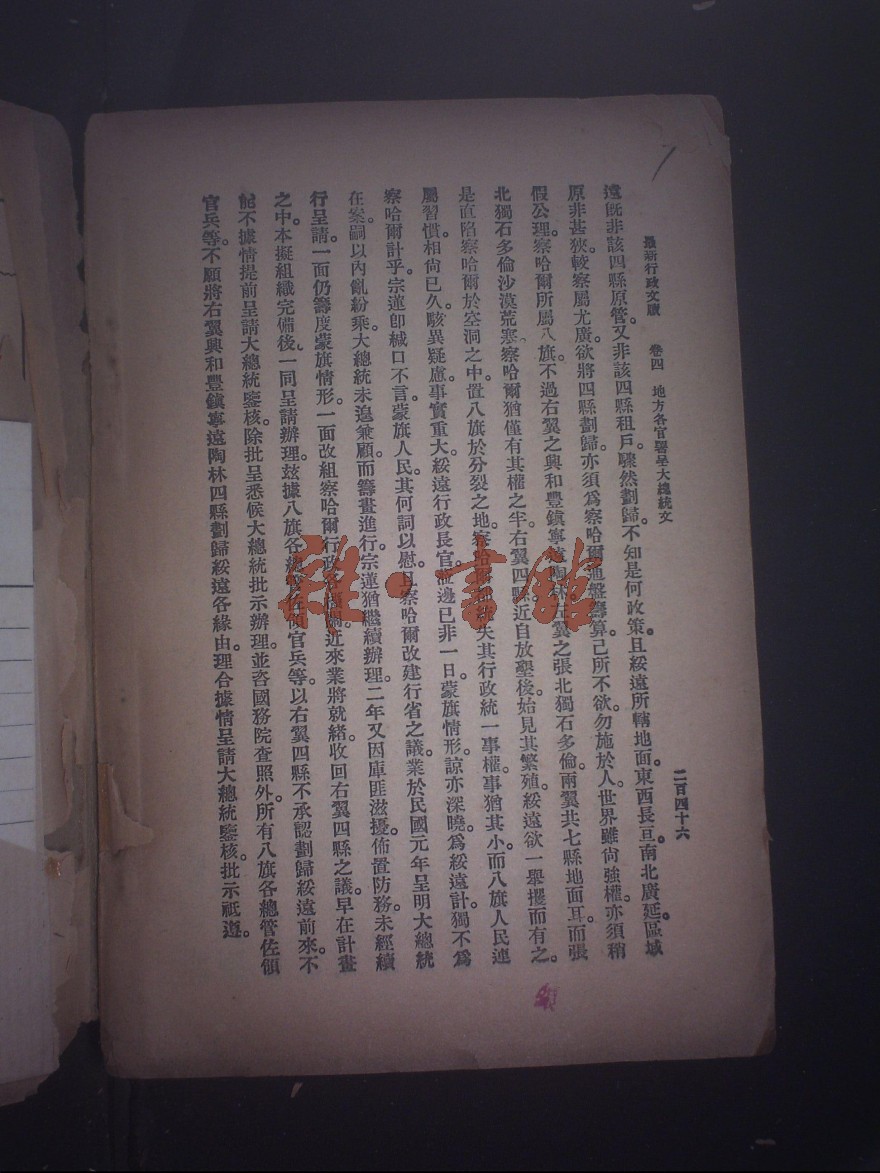 最新行政文牘 卷四 地方各官署呈大總統文 二百四十六
遠既非該四縣原管又非該四縣租戶驟然劃歸不知是何政策且綏遠所轄地面東西長亘南北廣延區域
原非甚狹較察屬尤廣欲將四縣劃歸亦須爲察哈爾通盤籌算己所不欲勿施於人世界雖尙強權亦須稍
假公理察哈爾所屬八旗不過右翼之興和豐鎭寧遠陶林左翼之張北獨石多倫兩翼共七縣地面耳而張
北獨石多倫沙漠荒寒察哈爾猶僅有其權之半右翼四縣近自放墾後始見其繁殖綏遠欲一舉攫而有之
是直陷察哈爾於空洞之中置八旗於分裂之地察哈爾失其行政統一事權事猶其小而八旗人民連
屬習慣相尙已久駭異疑慮事實重大綏遠行政長官蒞邊已非一日蒙旗情形諒亦深曉爲綏遠計獨不爲
察哈爾計乎宗蓮卽緘口不言蒙旗人民其何詞以慰且察哈爾改建行省之議業於民國元年呈明大總統
在案嗣以內亂紛乘大總統未遑兼顧而籌畫進行宗蓮猶繼續辦理二年又因庫匪滋擾佈置防務未經續
行呈請一面仍籌度蒙旗情形一面改組察哈爾行政各機關近來業將就緒收回右翼四縣之議早在計畫
之中本擬組織完備後一同呈請辦理玆據八旗各總管佐領官兵等以右翼四縣不承認劃歸綏遠前來不
能不據情提前呈請大總統鑒核除批呈悉候大總統批示辦理並咨國務院查照外所有八旗各總管佐領
官兵等不願將右翼興和豐鎭寧遠陶林四縣劃歸綏遠各緣由理合據情呈請大總統鑒核批示祇遵
雜·書館